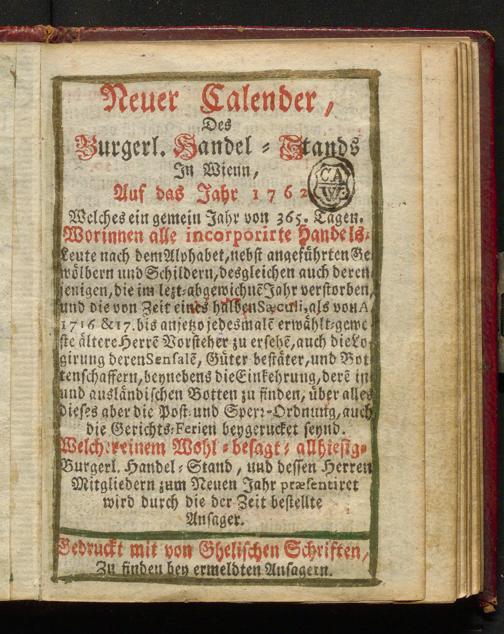 Neuer Calender,
Des
Burgerl. Handel-Stands
In Wienn,
Auf das Jahr 1762
CA
W
Welches ein gemein Jahr von 365. Tagen.
Worinnen alle incorporirte Handels-
Leute nach dem Alphabet, nebst angeführten Ge
wölbern und Schildern, desgleichen auch deren
jenigen, die im lezt-abgewichnē Jahr verstorben,
und die von Zeit eines halben Sæculi, als von A
1716 &17. bis anjetzo jedesmalē erwählt-gewe
ste ältere Herrē Vorsteher zu ersehē, auch die Lo
girung deren Sensalē, Güter bestäter, und Bot
tenschaffern, beynebens die Einkehrung, derē in
und ausländischen Botten zu finden, über alles
dieses aber die Post-und Sperr-Ordnung, auch
die Gerichts-Ferien beygerucket seynd.
Welcher einem Wohl-besagt-allhiesig-
Burgerl. Handel-Stand, und dessen Herren
Mitgliedern zum Neuen Jahr præsentiret
wird durch die der Zeit bestellte
Ansager.
Gedruckt mit von Ghelischen Schriften,
Zu finden bey ermeldten Ansagern.